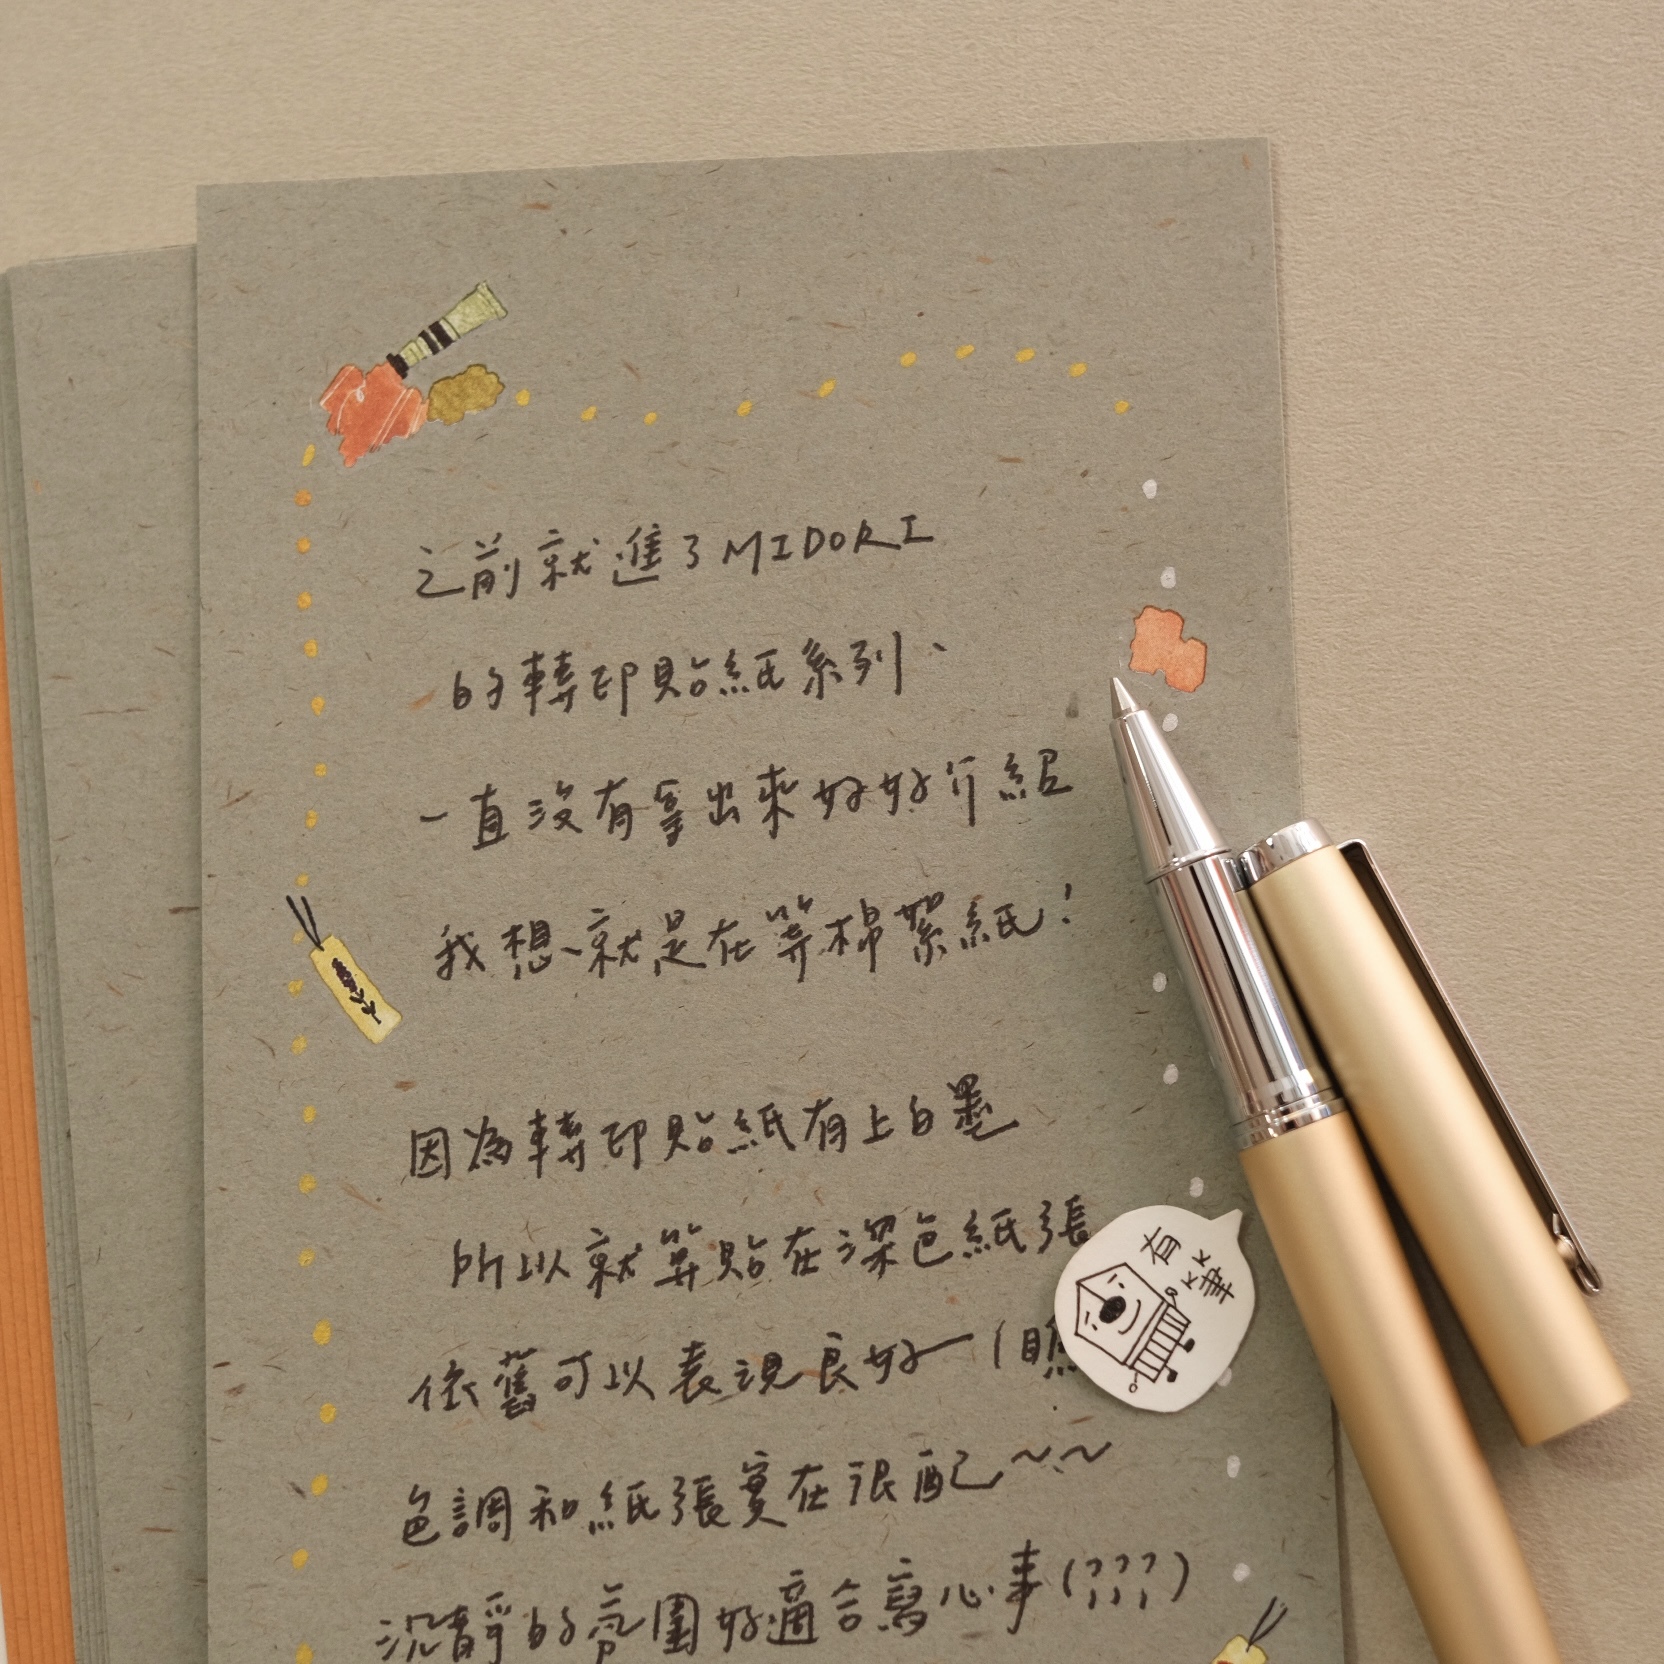 之前就進了MIDORI
的轉印貼紙系列、
一直沒有拿出來好好介紹
我想、就是在等棉絮紙！
因為轉印貼紙有上白墨
所以就算貼在深色紙張
依舊可以表現良好一（瞧
色調和紙張實在很配～～
沉靜的氛圍好適合寫心事(???)
有